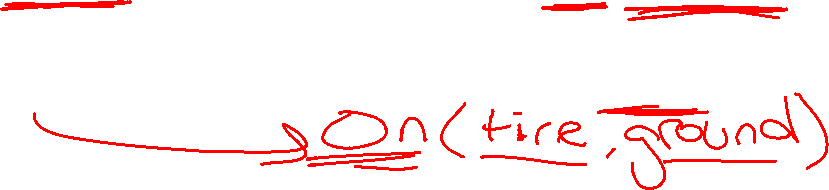 On(tire, ground)